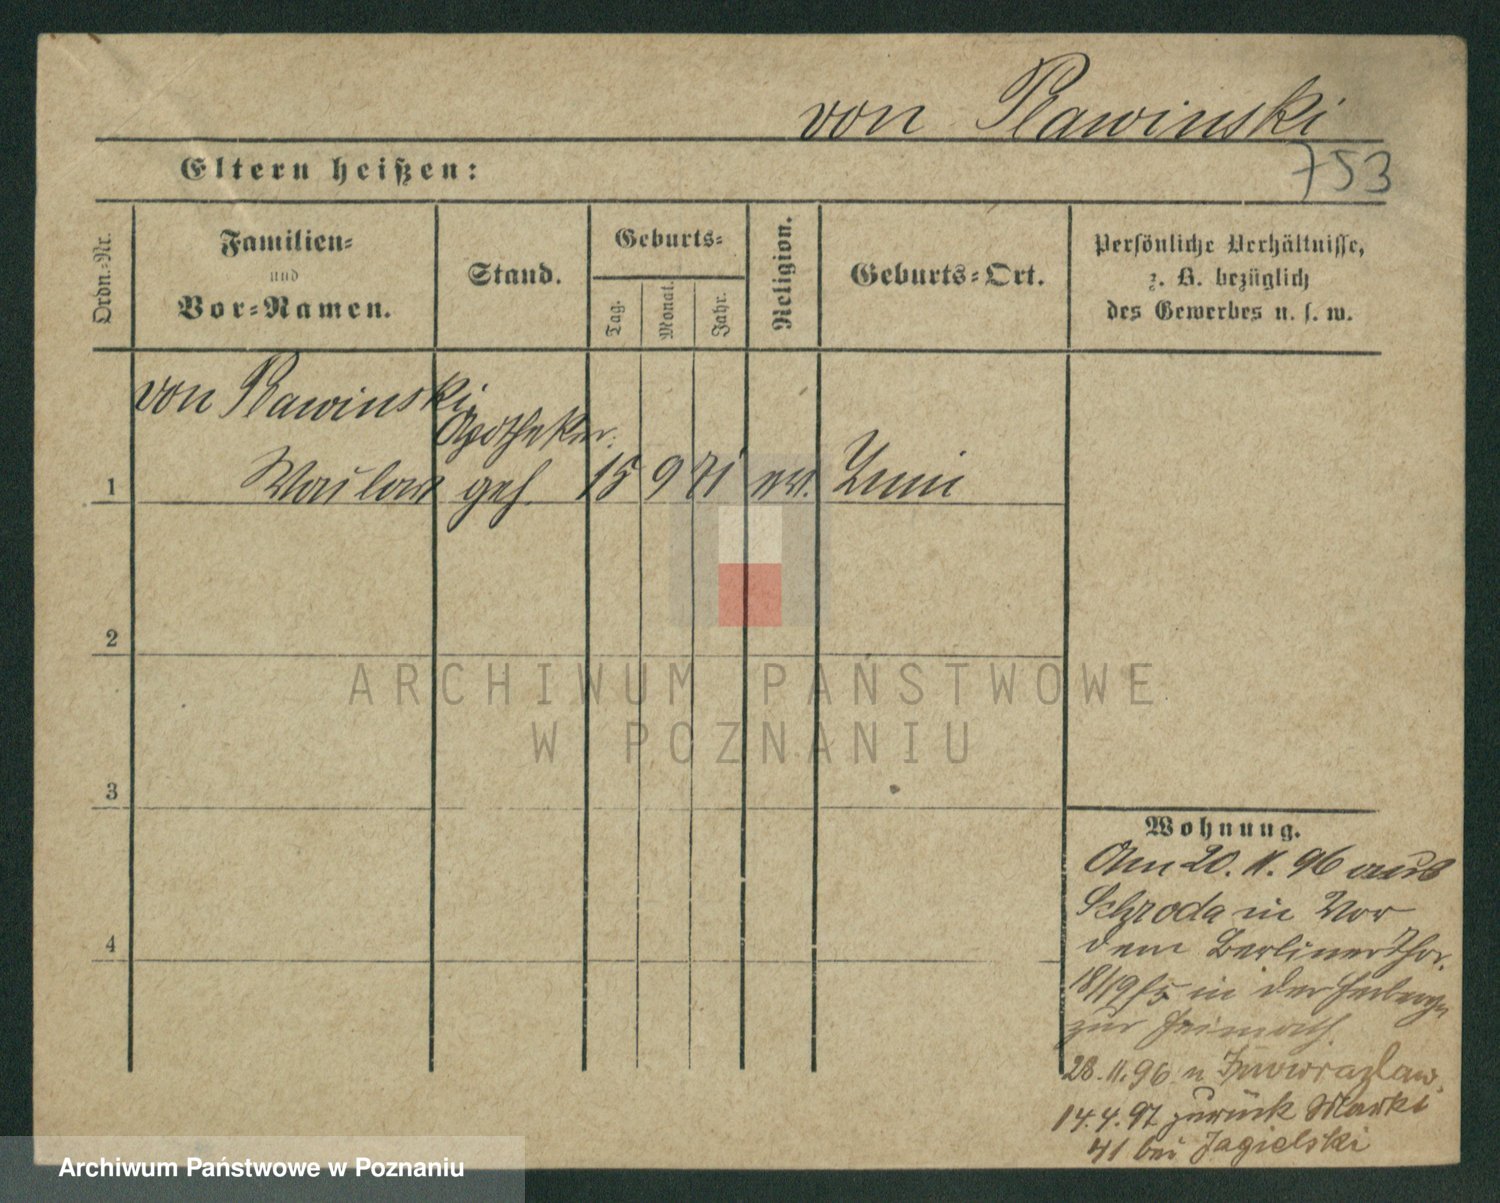 von Rawinski
753
Eltern heißen:
Ordn.-Nr.
Familien-
und
Vor-Namen.
Stand.
Geburts-
Tag.
Monat.
Jahr.
Religion.
Geburts-Ort.
Persönliche Verhältnisse,
z. B. bezüglich
des Gewerbes u. s. w.
von Rawinski
Apotheker
1 geh. 15 9 71 Znin
2
3
4
ARCHIWUM PAŃSTWOWE
W POZNANIU
Wohnung.
Am 20. 11. 96 aus
Schroda in Vor
dem Berliner Thor
18/19 in der Herberge
zur Heimath
28. 11. 96 n Inowrazlaw.
14. 4. 97 zurück Markt
41 bei Jagielski
Archiwum Państwowe w Poznaniu